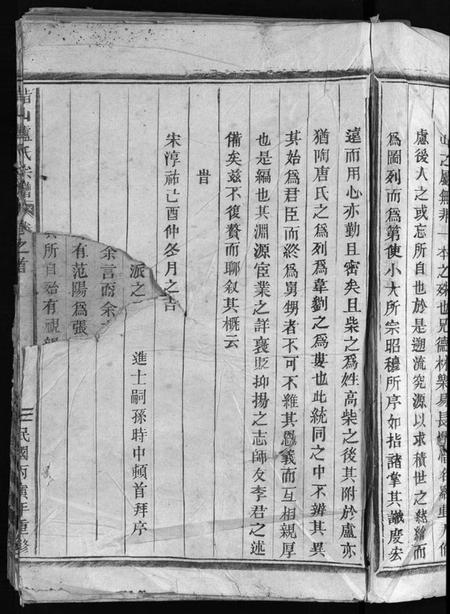 山之屬無非一本之殊也兄德材樂易長厚
慮後人之或忘所自也於是遡流究源以求積世之慈繪而
為圖列而為第使小大所宗昭穆所序如指諸掌其識慶宏
遠而用心亦勤且密矣且柴之為姓高柴之後其附於盧亦
猶陶唐氏之為列為韋劉之為婁也此統同之中不辨其異
其始為君臣而終為舅甥者不可不維其恩義而互相親厚
也是編也其淵源宦業之詳褒貶抑揚之志師友李君之述
備矣茲不復贅而聊叙其概云
旹
宋淳祐己酉仲冬月之吉
進士嗣孫時中頓首拜序
派之
余言而余
有范陽為張
所自始有視
山盧氏宗譜 卷之首
民國丙寅年重修